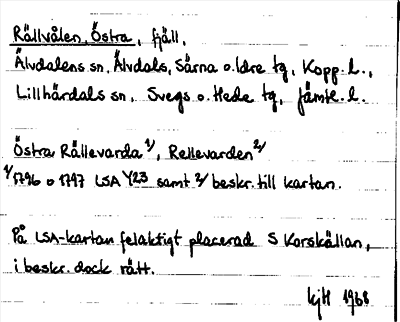 Rällvålen, Östra, fjäll,
Älvdalens sn, Älvdals, Särna o. Idre tg, Kopp. l.,
Lillhärdals sn, Svegs o. Hede tg, Jämtl. l.
Östra Rällevarda 1/, Rellevarden 2/
1/ 1796 o 1797 LSA Y23 samt 2/ beskr. till kartan.
På LSA-kartan felaktigt placerad S Korskällan,
i beskr. dock rätt.
1968